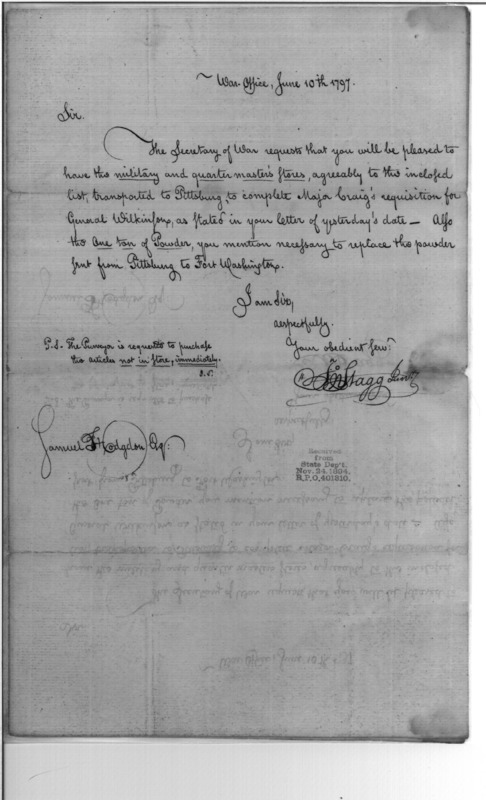 War Office, June 10th 1797.
Sir.
The Secretary of War requests that you will be pleased to
have the military and quarter master's stores, agreeably to the inclosed
list, transported to Pittsburg to complete Major Craig's requisition for
General Wilkinson, as stated in your letter of yesterday's date — Also
the One ton of Powder, you mention necessary to replace the powder
sent from Pittsburg to Fort Washington.
I am Sir,
respectfully.
Your obedient Servt
Jno Stagg Junr
P.S. The Purveyor is requested to purchase
the articles not in store, immediately.
J.S.
Samuel Hodgdon Esq:
Received
from
State Dep't.
Nov. 24, 1894,
R.P.O. 401810.